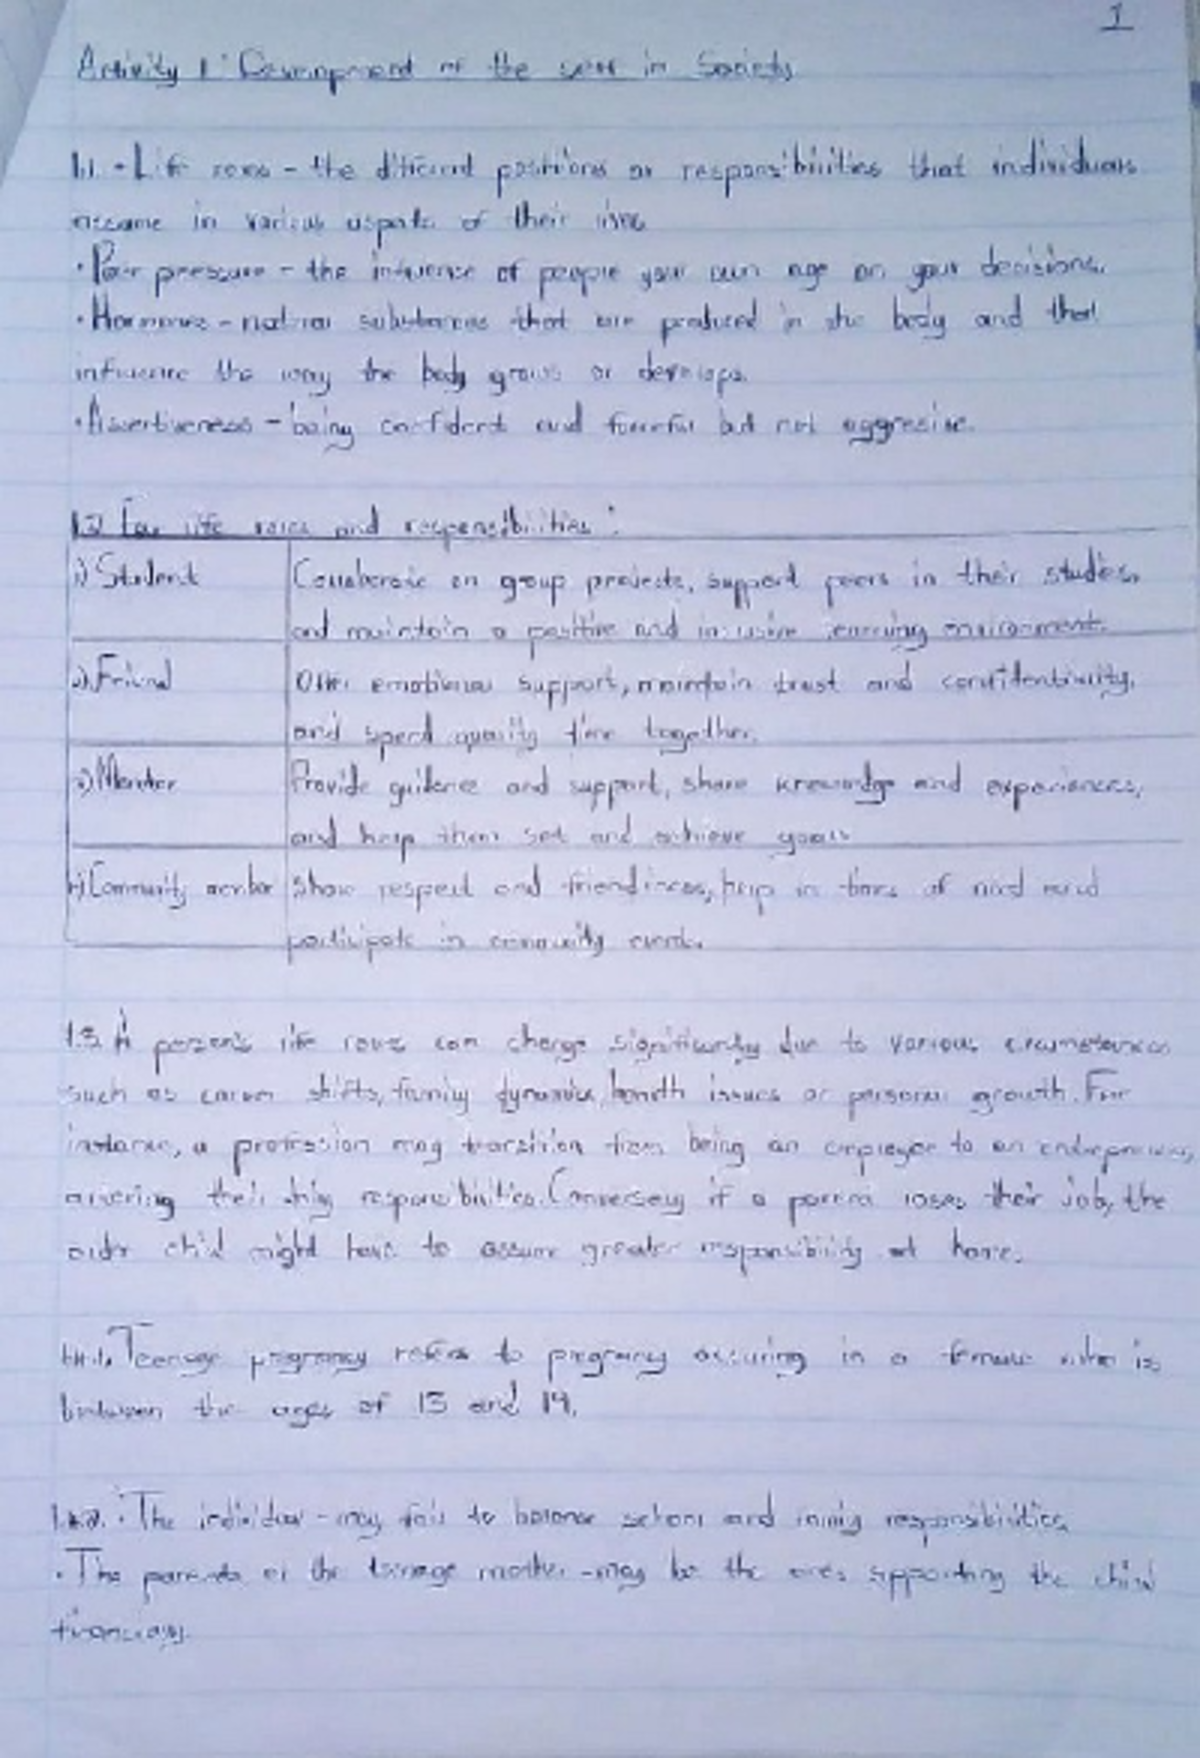 1
Activity 1: Development of the self in Society
1.1. • Life roles - the different positions or responsibilities that individuals
assume in various aspects of their lives
• Peer pressure - the influence of people your own age on your decisions.
• Hormones - natural substances that are produced in the body and that
influence the way the body grows or develops.
• Assertiveness - being confident and forceful but not aggresive.
1.2 Four life roles and responsibilities:
1) Student
Collaborate on group projects, support peers in their studies,
and maintain a positive and inclusive learning environment.
2) Friend
Offer emotional support, maintain trust and confidentiality,
and spend quality time together.
3) Mentor
Provide guidance and support, share knowledge and experiences,
and help them set and achieve goals
4) Community member
Show respect and friendliness, help in times of need and
participate in community events.
1.3. A person's life roles can change significantly due to various circumstances
such as career shifts, family dynamics, health issues or personal growth. For
instance, a profession may transition from being an employee to an entrepreneur,
altering their daily responsibilities. Conversely if a parent loses their job, the
older child might have to assume greater responsibility at home.
1.4.1. Teenage pregnancy refers to pregnancy occuring in a female who is
between the ages of 13 and 19.
1.4.2. • The individual - may fail to balance school and family responsibilities.
• The parents of the teenage mother - may be the ones supporting the child
financially.